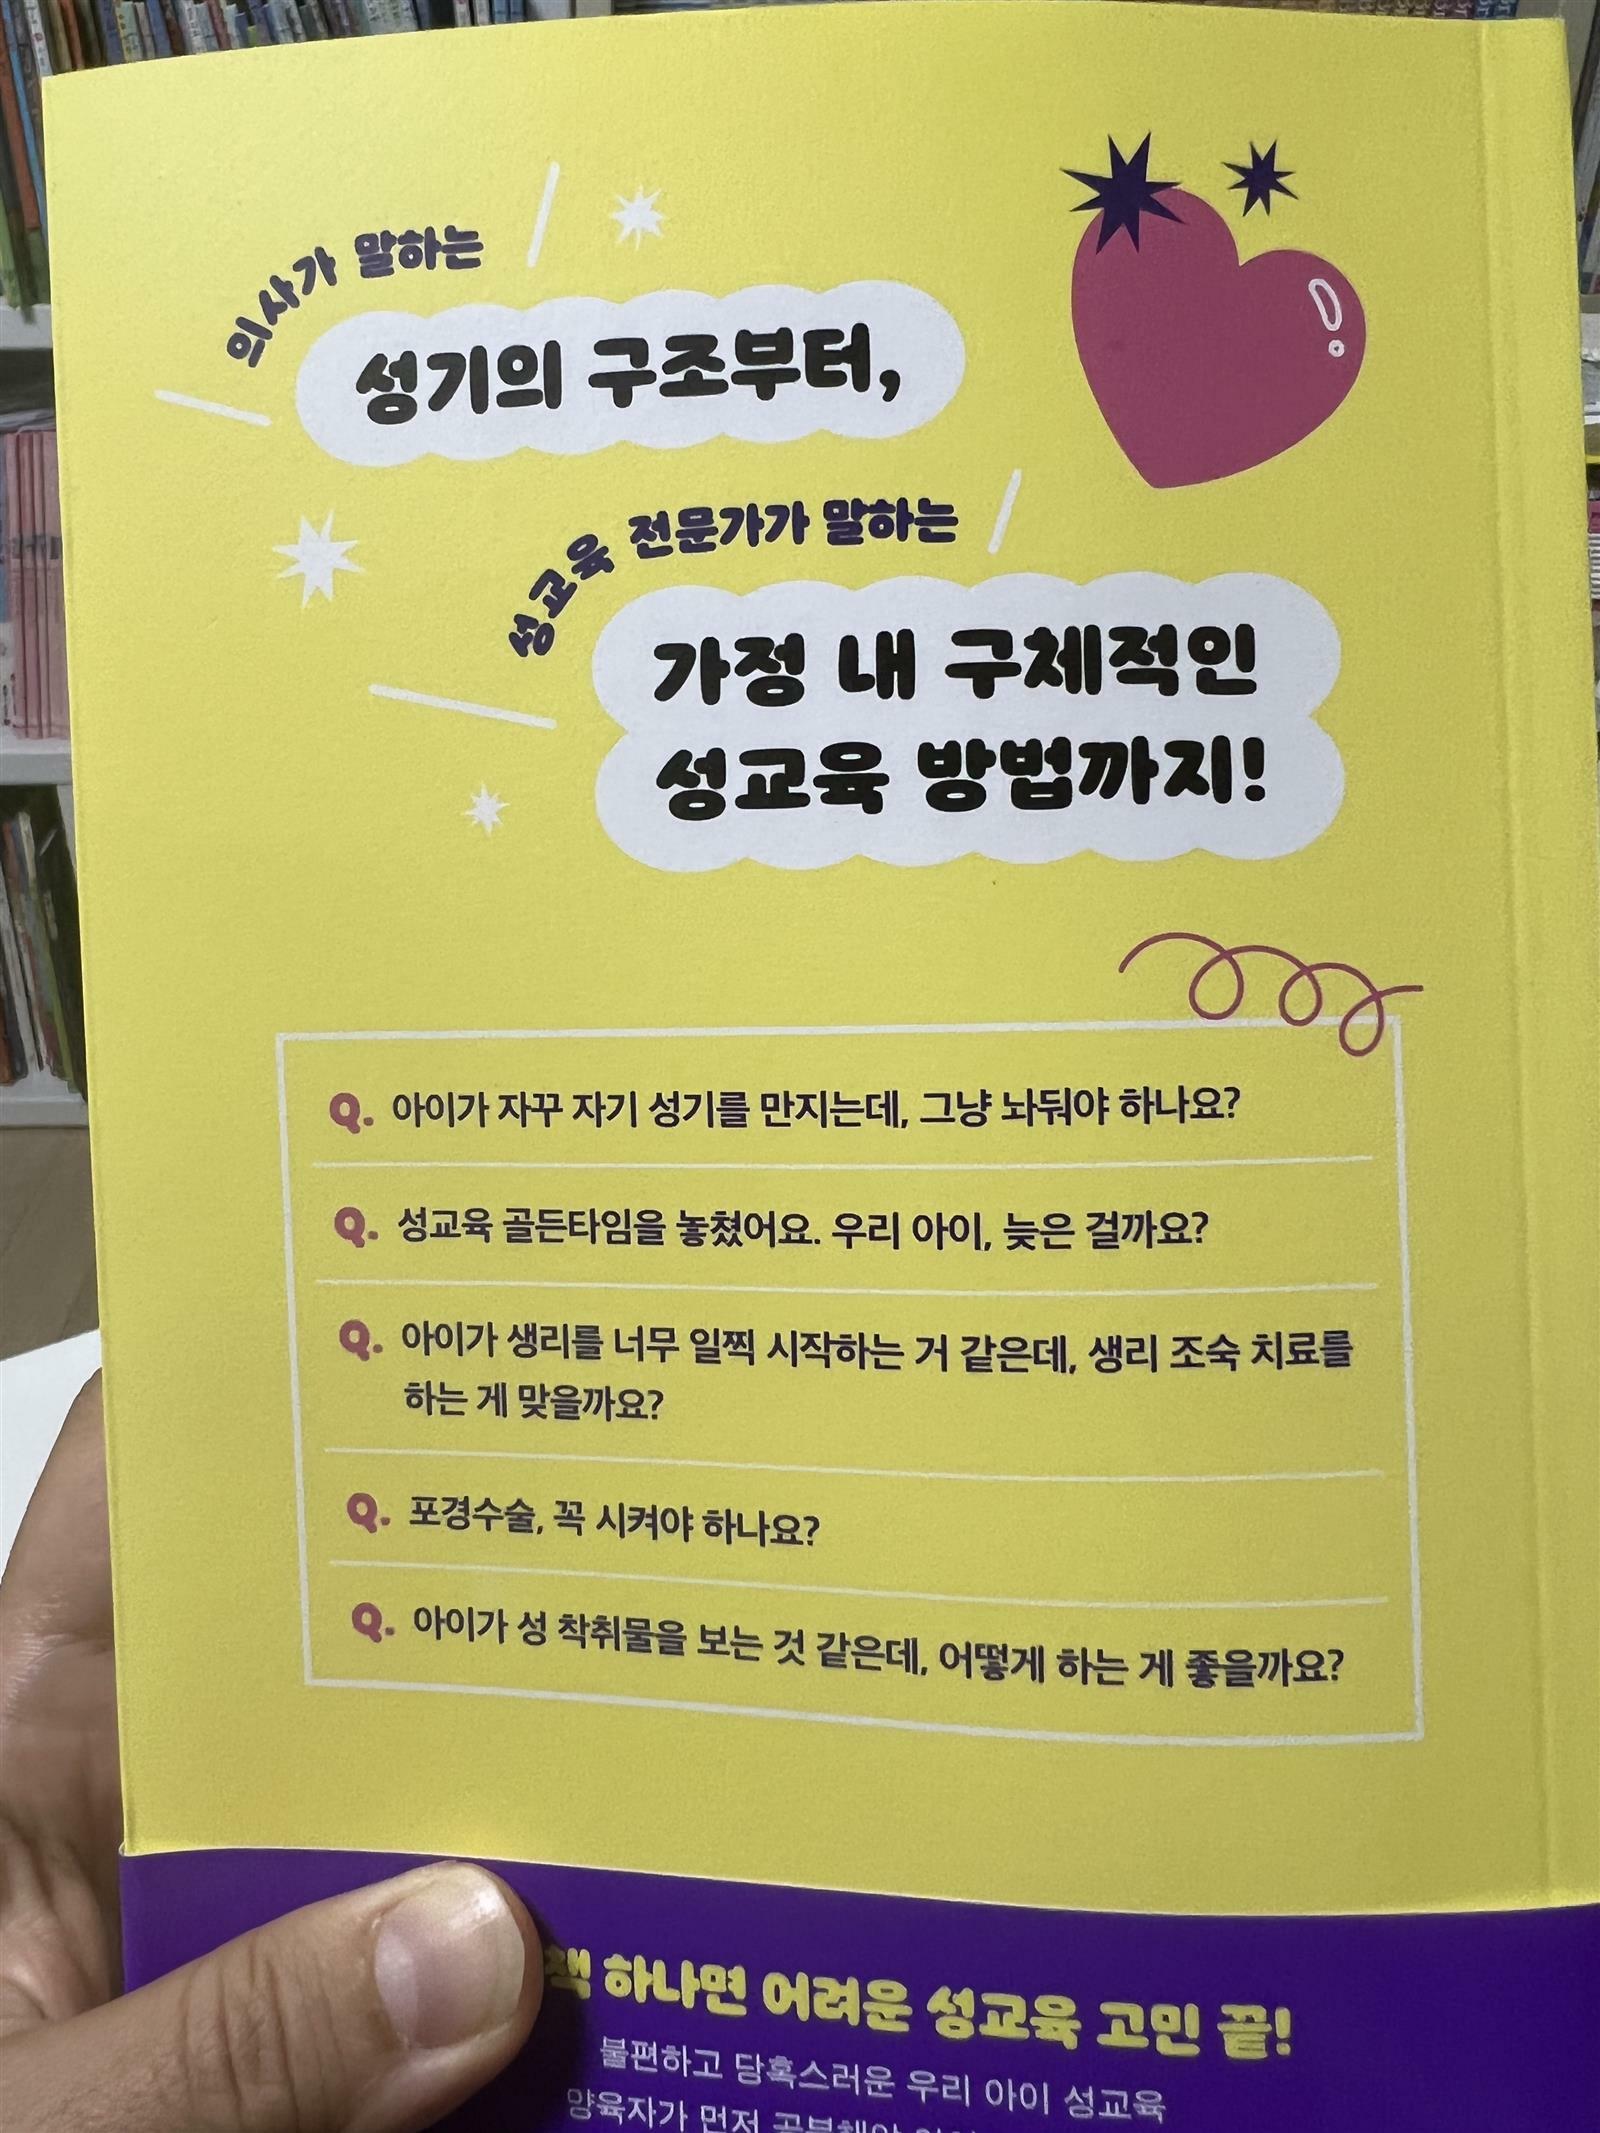 의사가 말하는
성기의 구조부터,
성교육 전문가가 말하는
가정 내 구체적인
성교육 방법까지!
Q. 아이가 자꾸 자기 성기를 만지는데, 그냥 놔둬야 하나요?
Q. 성교육 골든타임을 놓쳤어요. 우리 아이, 늦은 걸까요?
Q. 아이가 생리를 너무 일찍 시작하는 거 같은데, 생리 조숙 치료를
하는 게 맞을까요?
Q. 포경수술, 꼭 시켜야 하나요?
Q. 아이가 성 착취물을 보는 것 같은데, 어떻게 하는 게 좋을까요?
책 하나면 어려운 성교육 고민 끝!
불편하고 당혹스러운 우리 아이 성교육
양육자가 먼저